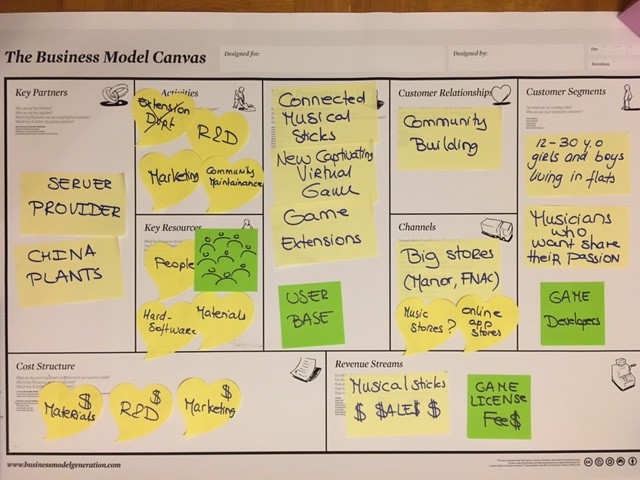 The Business Model Canvas
Designed for:
Designed by:
On:
Iteration:
Key Partners
SERVER
PROVIDER
CHINA
PLANTS
Activities
Extension
R&D
Marketing
Community
Maintainance
Key Resources
People
Hard-
Software
Materials
Connected
Musical
Sticks
New Captivating
Virtual
Game
Game
Extensions
USER
BASE
Customer Relationships
Community
Building
Channels
Big stores
(Manor, FNAC)
Music
Stores?
online
app
stores
Customer Segments
12-30 y.o
girls and boys
living in flats
Musicians
who
want share
their passion
GAME
Developers
Cost Structure
$
Materials
$
R&D
$
Marketing
Revenue Streams
Musical sticks
$ $ALE$ $
GAME
LICENSE
Fee$
www.businessmodelgeneration.com